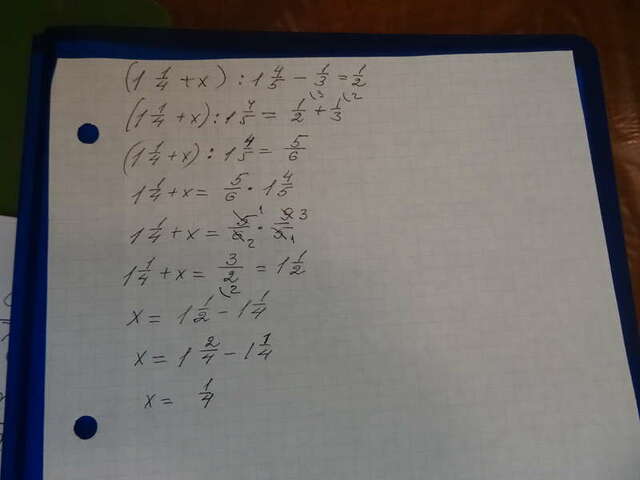 (1 1/4 + x) : 1 4/5 - 1/3 = 1/2
(1 1/4 + x) : 1 4/5 = 1/2 (3 + 1/3 (2
(1 1/4 + x) : 1 4/5 = 5/6
1 1/4 + x = 5/6 · 1 4/5
1 1/4 + x = 5/6 1 2 · 9/5 3 1
1 1/4 + x = 3/2 = 1 1/2
x = 1 1/2 (2 - 1 1/4
x = 1 2/4 - 1 1/4
x = 1/4